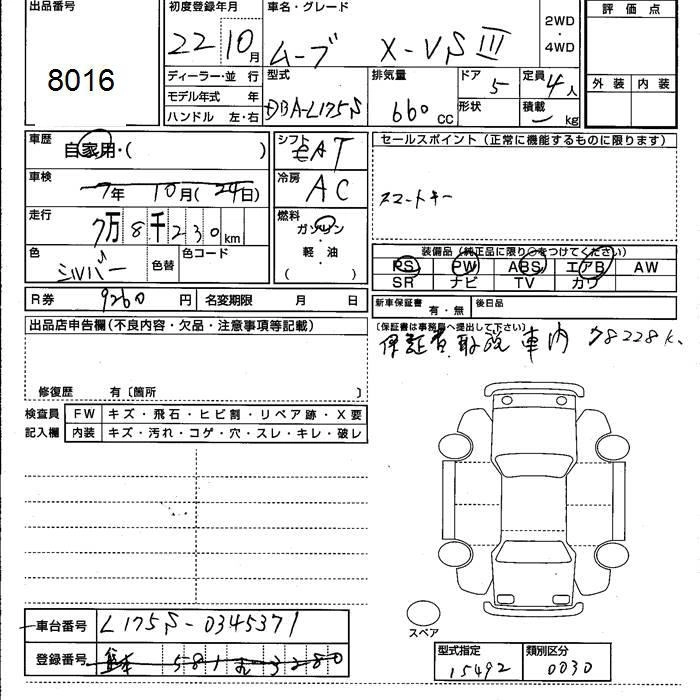 出品番号 初度登録年月 車名・グレード 評価点
8016 22 10月 ムーブ X-VS III 2WD・4WD
ディーラー・並行 型式 排気量 ドア 定員 外装 内装
モデル年式 年 DBA-L175S 660cc 5 4人
ハンドル 左・右 形状 積載 kg
車歴 自家用・( ) シフト AT セールスポイント (正常に機能するものに限ります)
車検 7年 10月(24日) 冷房 AC スマートキー
走行 7万8千230km 燃料 ガソリン・軽油 ( )
色 シルバー 色替 色コード 装備品 (純正品に限り○をつけてください)
PS PW ABS エアB AW
SR ナビ TV カワ
R券 9260円 名変期限 月 日 新車保証書 有・無 後日品
出品店申告欄(不良内容・欠品・注意事項等記載) (保証書は事務局へ提出して下さい)
保証書取説車内 78228K
修復歴 有〔箇所 〕
検査員 FW キズ・飛石・ヒビ割・リペア跡・X要
記入欄 内装 キズ・汚れ・コゲ・穴・スレ・キレ・破レ
スペア
車台番号 L175S-0345371
型式指定 類別区分
登録番号 熊本 581 3280 15492 0030